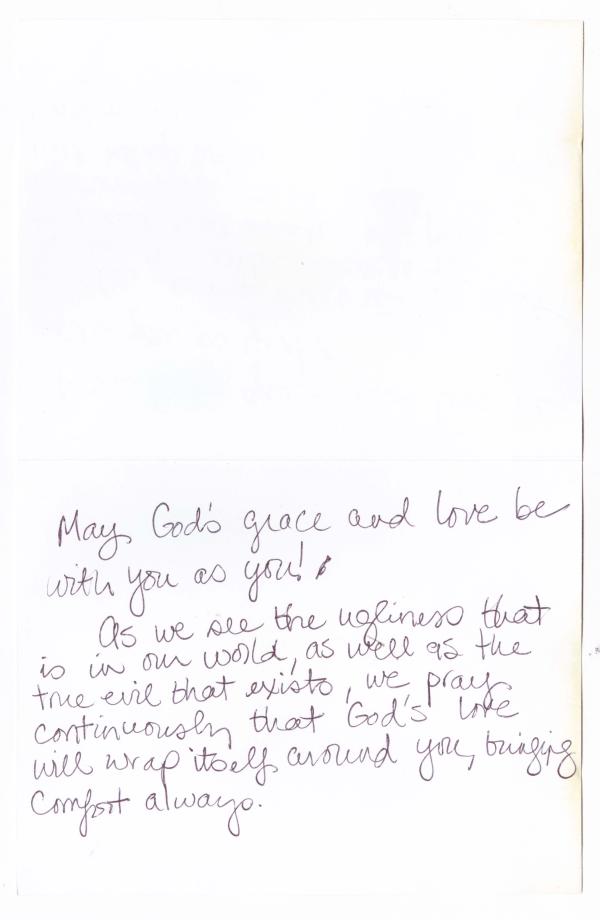 May God's grace and love be
with you as you!
As we see the ugliness that
is in our world, as well as the
true evil that exists, we pray
continuously that God's love
will wrap itself around you, bringing
comfort always.